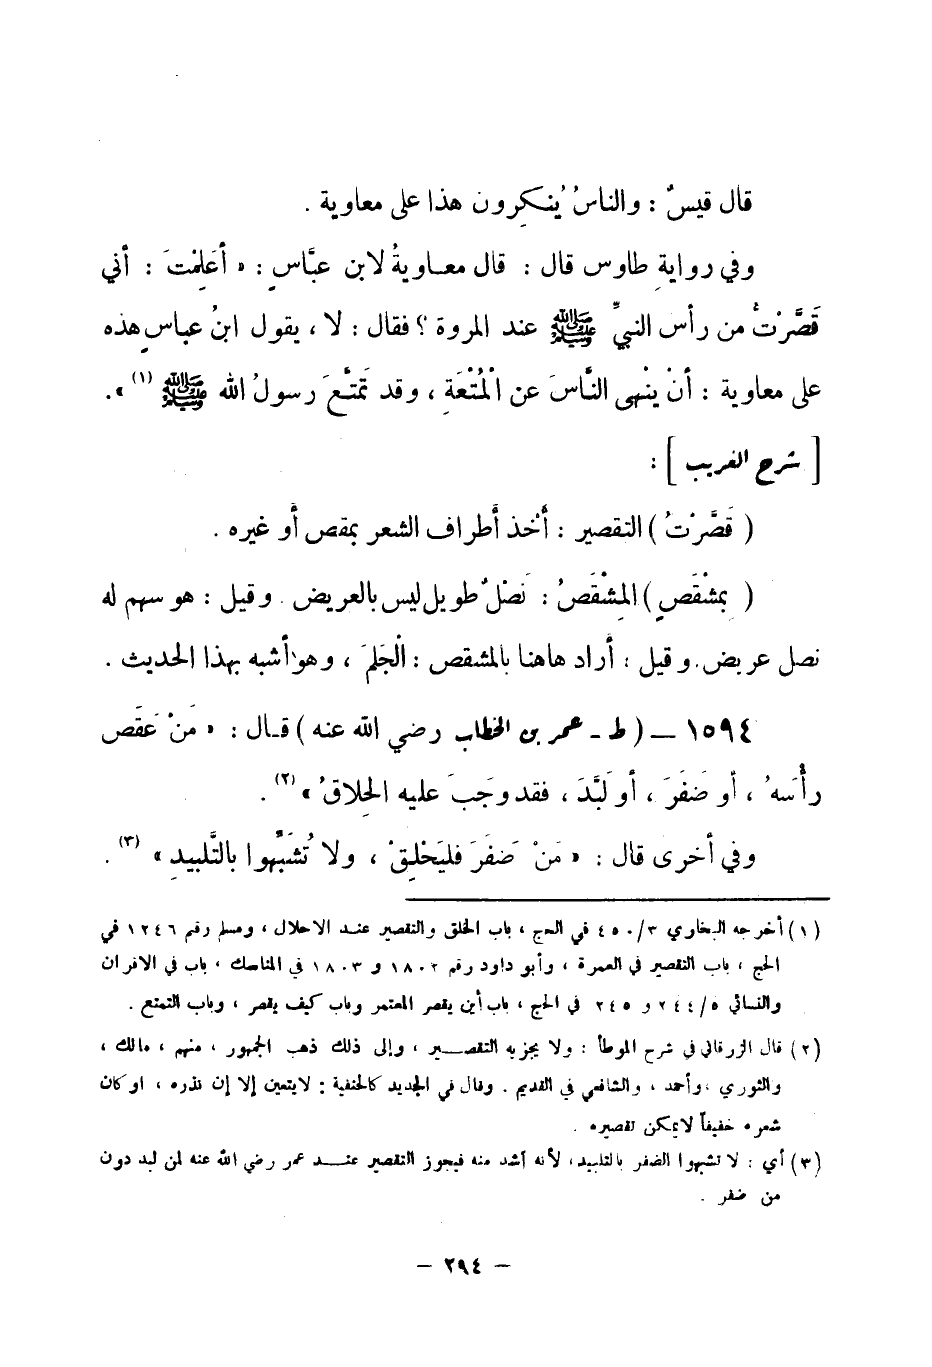 قال قيسٌ : والناسُ يُنكِرون هذا على معاوية .
وفي روايةِ طاوس قال : قال معاويةُ لابن عبَّاسٍ : « أَعَلِمْتَ : أني
قَصَّرْتُ من رأس النبيِّ ﷺ عند المروة ؟ فقال : لا ، يقول ابنُ عباسٍ هذه
على معاوية : أنْ يَنْهى النَّاسَ عن الْمُتْعَةِ ، وقد تَمتَّعَ رسولُ الله ﷺ (١) » .
[ شرح الغريب ] :
( قَصَّرْتُ ) التقصير : أخذ أطراف الشعر بمقص أو غيره .
( بِمشْقَصٍ ) المِشْقَصُ : نَصْلٌ طويل ليس بالعريض . وقيل : هو سهم له
نصل عريض . وقيل : أراد هاهنا بالمشقص : الْجَلَمَ ، وهو أشبه بهذا الحديث .
١٥٩٤ — ( ط - عمر بن الخطاب رضي الله عنه ) قال : « مَنْ عَقَصَ
رأْسَهُ ، أو ضَفَرَ ، أو لَبَّدَ ، فقد وجَبَ عليه الحِلاقُ » (٢) .
وفي أخرى قال : « مَنْ ضَفَرَ فليَحْلِقْ ، ولا تُشَبِّهوا بالتَّلبيدِ » (٣) .
(١) أخرجه البخاري ٤٥٠/٣ في الحج ، باب الحلق والتقصير عند الاحلال ، ومسلم رقم ١٢٤٦ في
الحج ، باب التقصير في العمرة ، وأبو داود رقم ١٨٠٢ و ١٨٠٣ في المناسك ، باب في الاقران
والنسائي ٢٤٤/٥ و ٢٤٥ في الحج ، باب أين يقصر المعتمر وباب كيف يقصر ، وباب التمتع .
(٢) قال الزرقاني في شرح الموطأ : ولا يجزيه التقصير ، وإلى ذلك ذهب الجمهور ، منهم ، مالك ،
والثوري ، وأحمد ، والشافعي في القديم . وقال في الجديد كالحنفية : لايتعين إلا إن نذره ، اوكان
شعره خفيفاً لايمكن تقصيره .
(٣) أي : لا تشبهوا الضفر بالتلبيد ، لأنه أشد منه فيجوز التقصير عند عمر رضي الله عنه لمن لبد دون
من ضفر .
— ٢٩٤ —